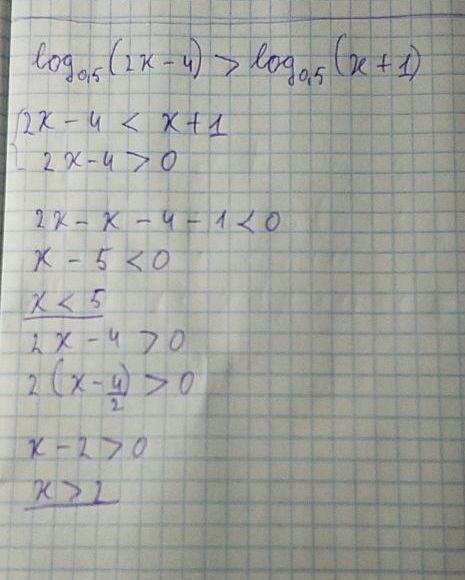 log₀,₅(2x-4) > log₀,₅(x+1)
{2x-4 < x+1
2x-4 > 0
2x-x-4-1<0
x-5<0
x<5
2x-4>0
2(x-4/2)>0
x-2>0
x>2